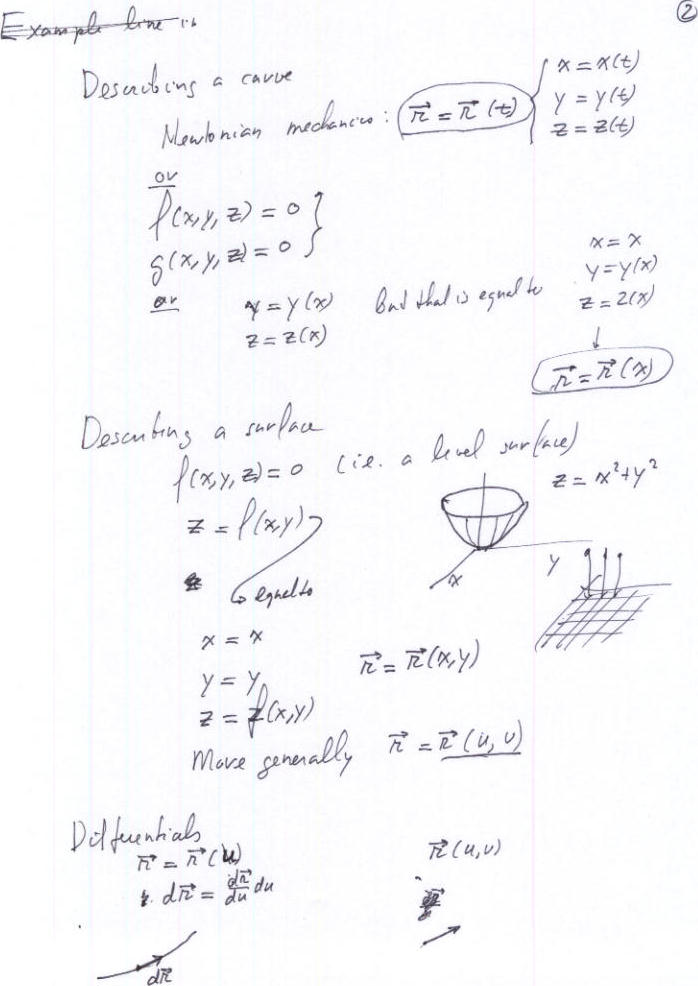 ②
Example line in
Describing a curve
Newtonian mechanics: r⃗ = r⃗ (t) { x = x(t)
y = y(t)
z = z(t)
or
f(x,y,z) = 0 }
g(x,y,z) = 0
or y = y(x) but that is equal to x = x
z = z(x) y = y(x)
z = z(x)
↓
r⃗ = r⃗ (x)
Describing a surface
f(x,y,z) = 0 (i.e. a level surface)
z = f(x,y) z = x²+y²
x y
equal to
x = x
y = y r⃗ = r⃗(x,y)
z = f(x,y)
More generally r⃗ = r⃗(u,v)
Differentials
r⃗ = r⃗(u) r⃗(u,v)
dr⃗ = dr⃗/du du
dr⃗